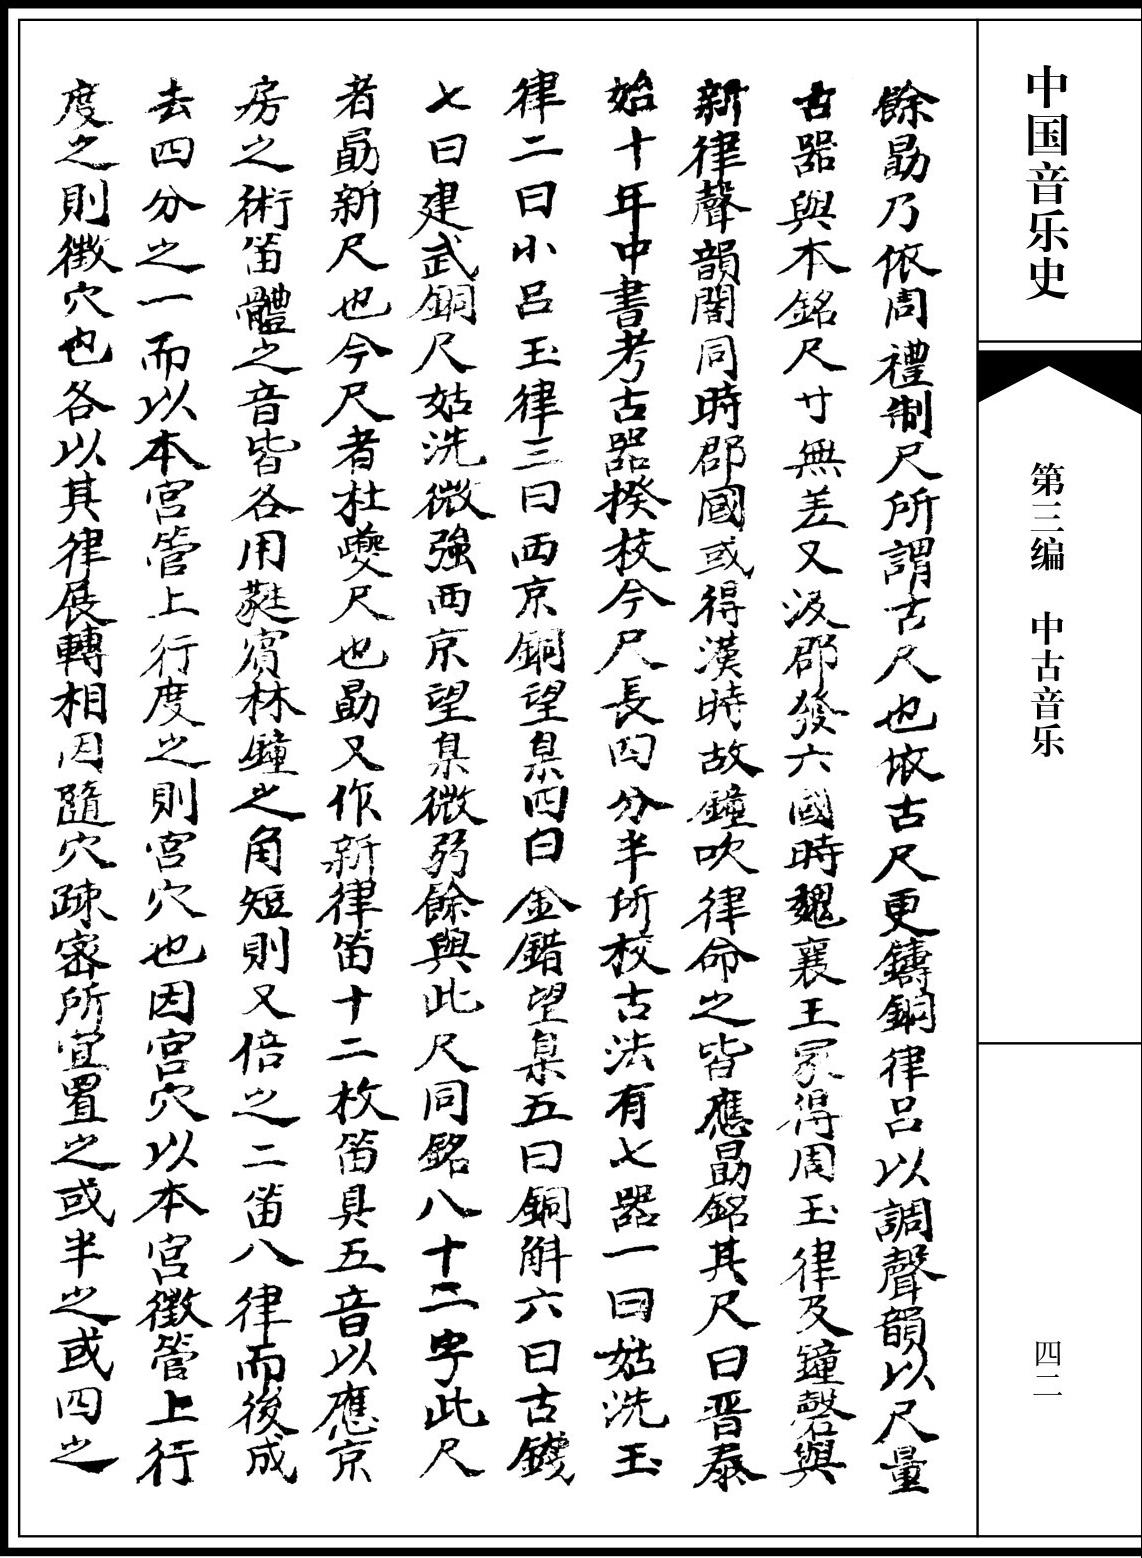 中国音乐史
第三编 中古音乐
四二
餘勗乃依周禮制尺所謂古尺也依古尺更鑄銅律呂以調聲韻以尺量
古器與本銘尺寸無差又汲郡發六國時魏襄王冢得周玉律及鐘磬與
新律聲韻闇同時郡國或得漢時故鐘吹律命之皆應勗銘其尺曰晋泰
始十年中書考古器揆校今尺長四分半所校古法有七器一曰姑洗玉
律二曰小呂玉律三曰西京銅望臬四曰金錯望臬五曰銅斛六曰古錢
七曰建武銅尺姑洗微強西京望臬微弱餘與此尺同銘八十二字此尺
者勗新尺也今尺者杜夔尺也勗又作新律笛十二枚笛具五音以應京
房之術笛體之音皆各用蕤賓林鐘之角短則又倍之二笛八律而後成
去四分之一而以本宮管上行度之則宮穴也因宮穴以本宮徵管上行
度之則徵穴也各以其律展轉相因隨穴疎密所宜置之或半之或四之